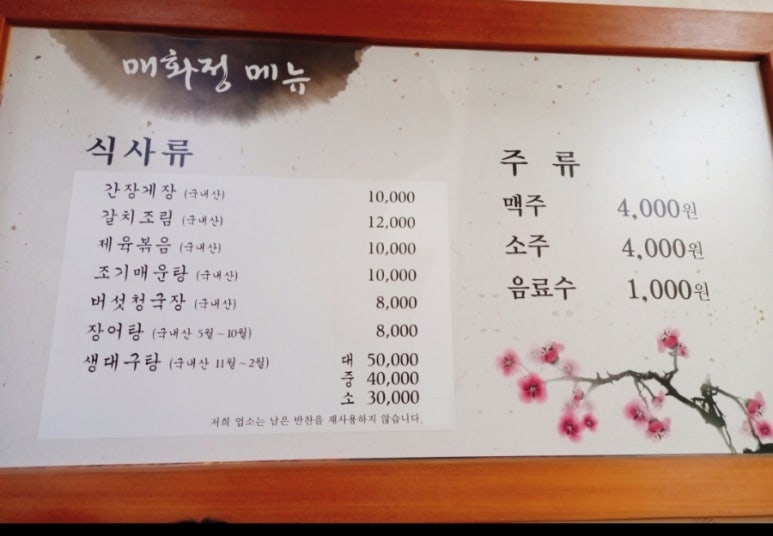 매화정 메뉴
식사류
간장게장 (국내산) 10,000
갈치조림 (국내산) 12,000
제육볶음 (국내산) 10,000
조기매운탕 (국내산) 10,000
버섯청국장 (국내산) 8,000
장어탕 (국내산 5월~10월) 8,000
생대구탕 (국내산 11월~2월) 대 50,000
중 40,000
소 30,000
저희 업소는 남은 반찬을 재사용하지 않습니다.
주 류
맥주 4,000원
소주 4,000원
음료수 1,000원